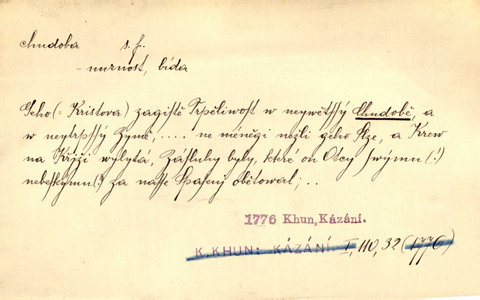 chudoba s. f.
- nuznost, bída
Geho (: Kristova) zagisté Trpěliwost w neywětssý Chudobě, a
w neytrpssý Zymě, .... ne méněgi nežli geho Slze, a Krew
na Křjži wylytá, Zásluhy byly, které on Otcy swýmu (!)
nebeskýmu (!) za nasse Spasený obětowal; ..
1776 Khun, Kázáni.
K. KHUN: KÁZÁNÍ. I, 110, 32 (1776)